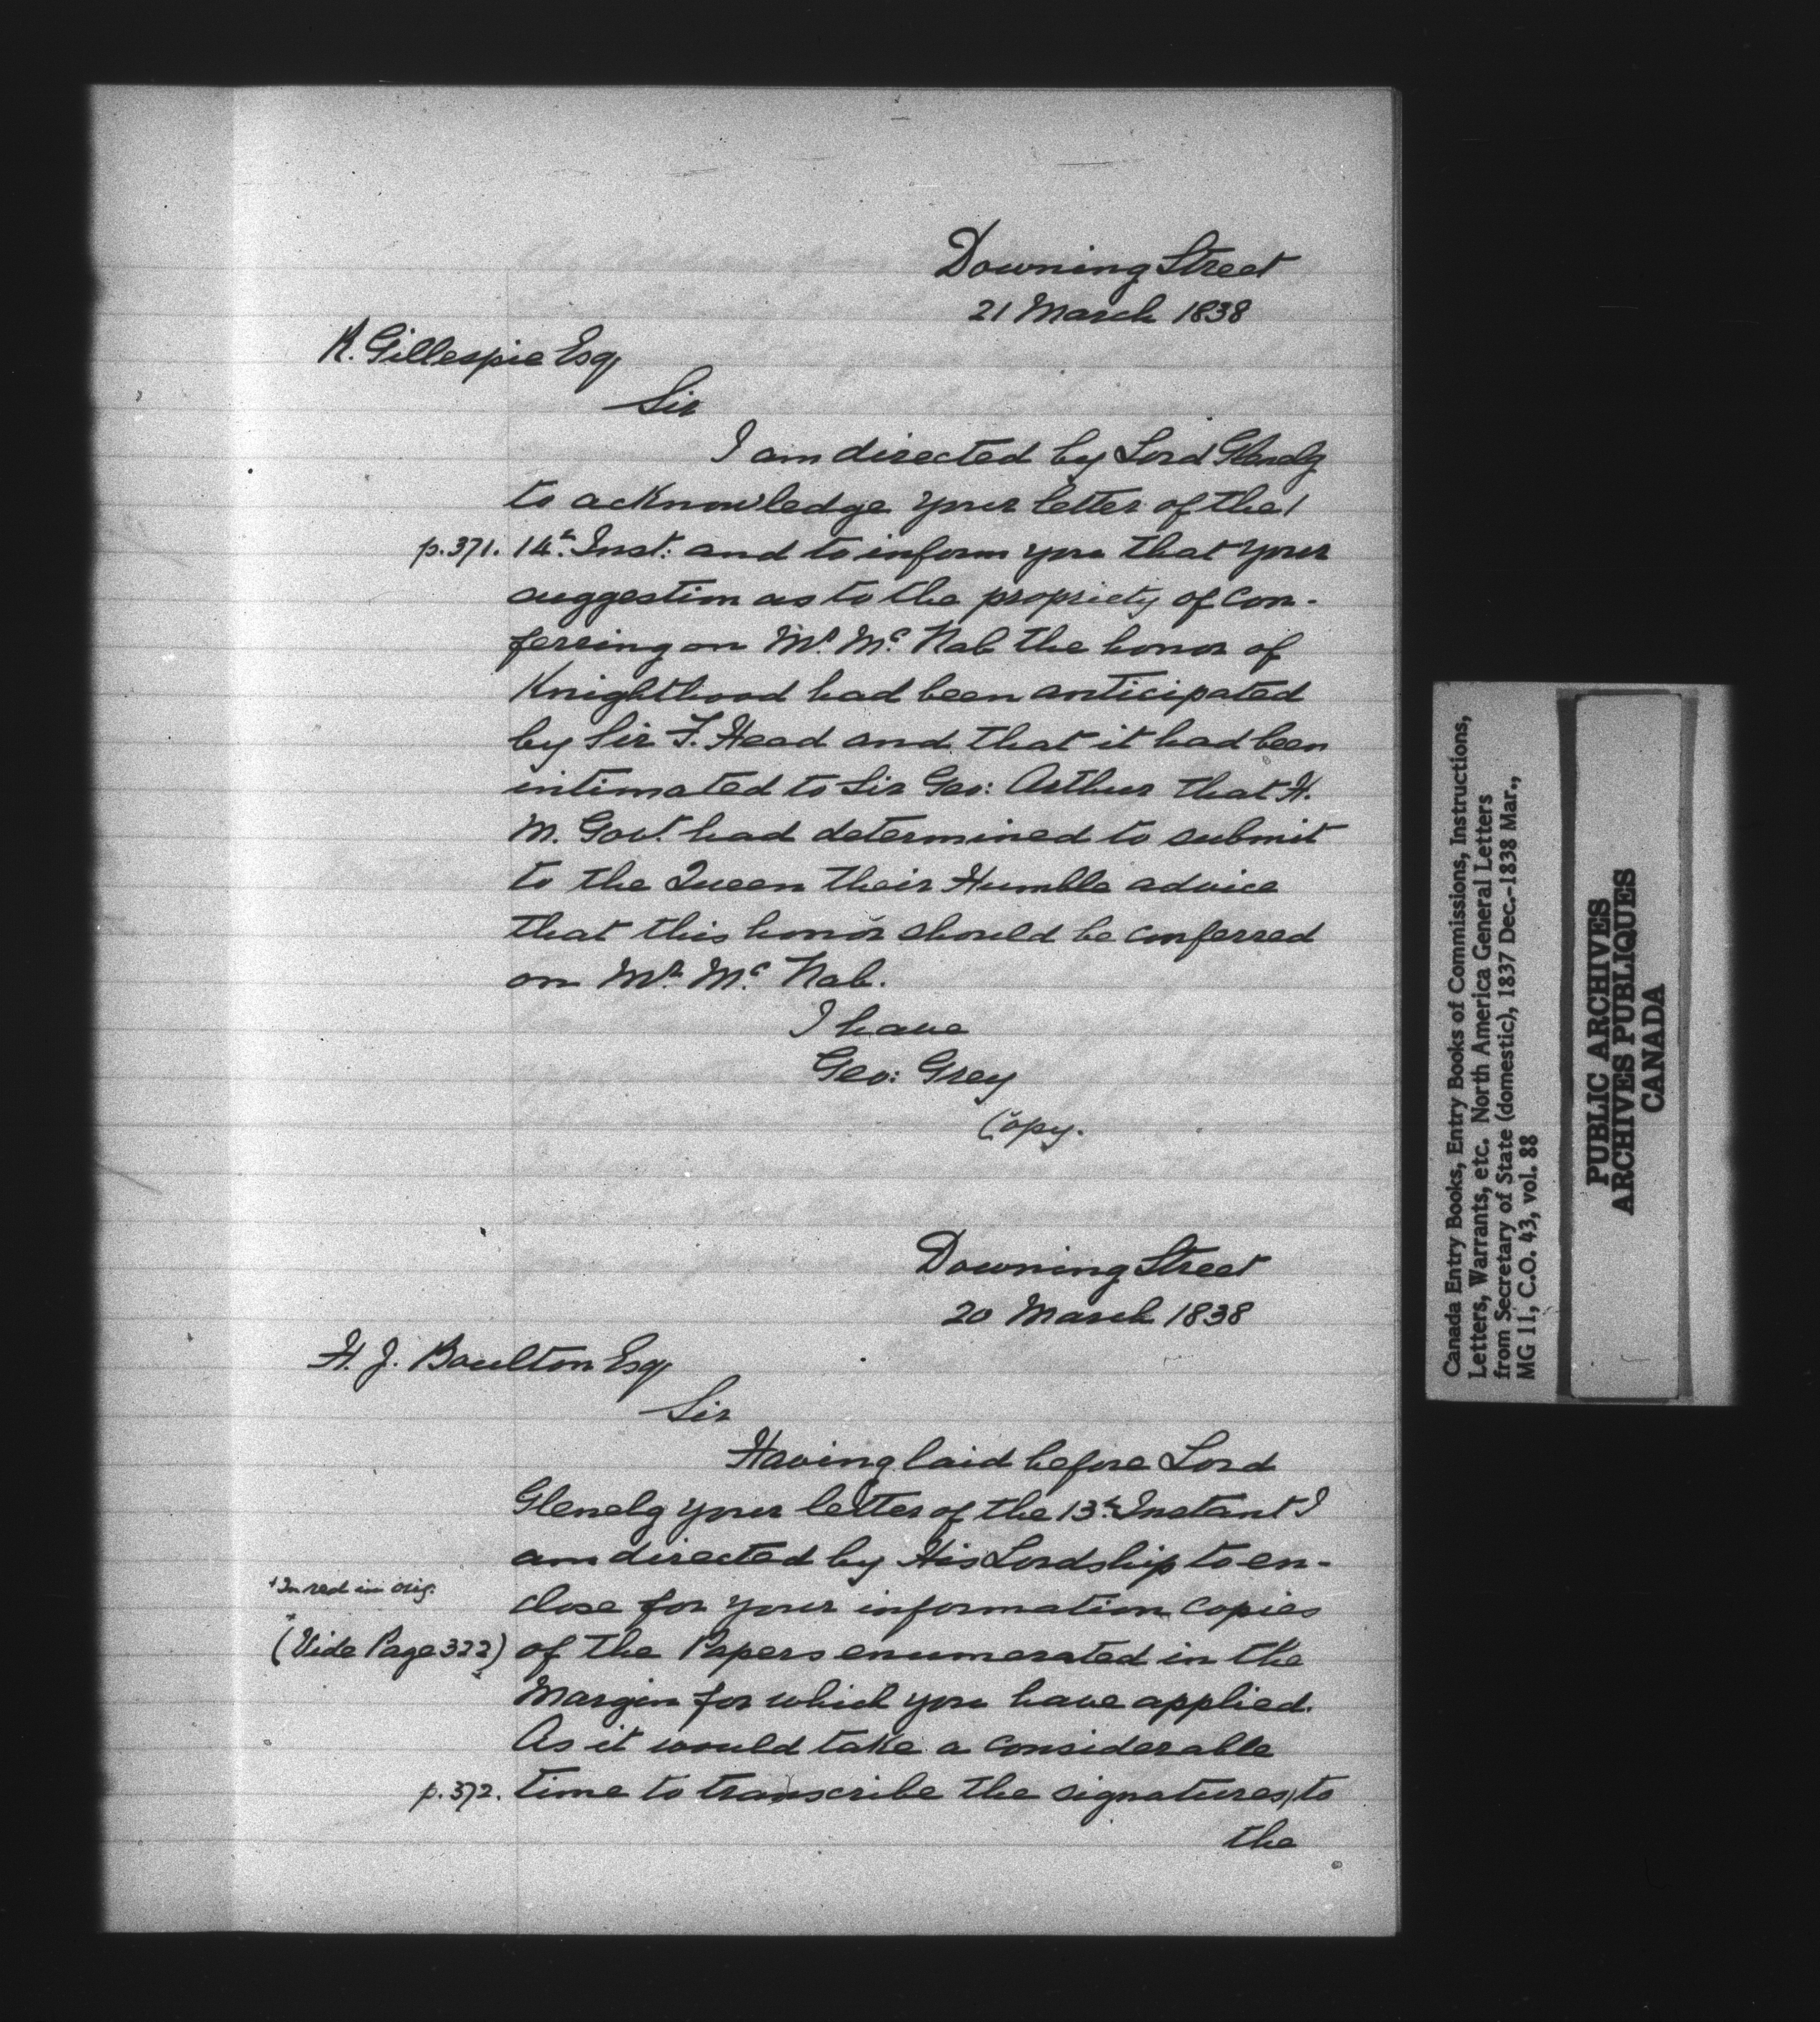 Downing Street
21 March 1838
R. Gillespie Esq
Sir
I am directed by Lord Glenelg
to acknowledge your letter of the /
p.371. 14th Inst: and to inform you that your
suggestion as to the propriety of con-
ferring on Mr. Mc. Nab the honor of
Knighthood had been anticipated
by Sir F. Head and that it had been
intimated to Sir Geo: Arthur that H.
M. Govt. had determined to submit
to the Queen their Humble advice
that this honor should be conferred
on Mr. Mc. Nab.
I have
Geo: Grey
Copy.
Downing Street
20 March 1838
H. J. Boulton Esq
Sir
Having laid before Lord
Glenelg your letter of the 13th Instant I
am directed by His Lordship to en-
+In red in orig.
close for your information copies
+(Vide Page 322) of the Papers enumerated in the
Margin for which you have applied.
As it would take a considerable
p.372. time to transcribe the signatures, / to
the
Canada Entry Books, Entry Books of Commissions, Instructions,
Letters, Warrants, etc. North America General Letters
from Secretary of State (domestic), 1837 Dec.-1838 Mar.,
MG 11, C.O. 43, vol. 88
PUBLIC ARCHIVES
ARCHIVES PUBLIQUES
CANADA